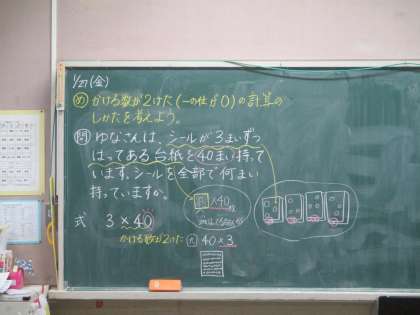 1/27(金)
め かける数が2けた(一の位が0)の計算の
しかたを考えよう。
問 ゆなさんは、シールが3まいずつ
はってある台紙を40まい持って
います。シールを全部で何まい
持っていますか。
×40
式 3×40
かける数が2けた
40×3